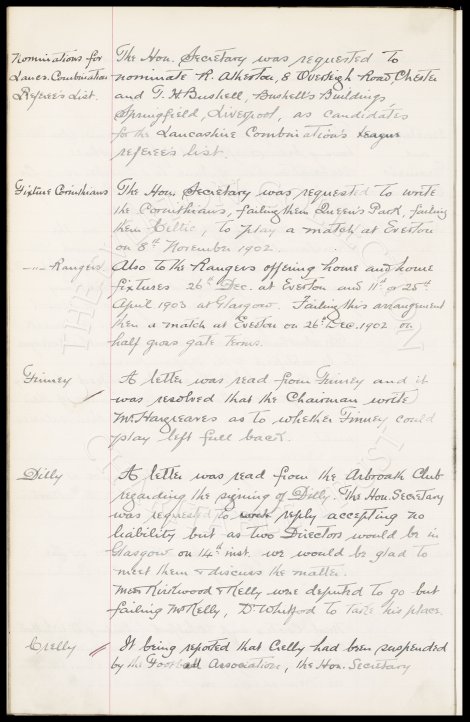 Nominations for
Lancs. Combination
Referee's List.
The Hon. Secretary was requested to
nominate R. Atherton, 8 Overleigh Road, Chester
and T. H. Bushell, Bushell's Buildings,
Springfield, Liverpool, as candidates
for the Lancashire Combination's League
referee's list.
Fixture Corinthians
The Hon. Secretary was requested to write
the Corinthians, failing them Queen's Park, failing
them Celtic, to play a match at Everton
on 8th November 1902.
-"- Rangers
Also to the Rangers offering home and home
fixtures 26th Dec. at Everton and 11th or 25th
April 1903 at Glasgow. Failing this arrangement
then a match at Everton on 26th Dec. 1902 on
half gross gate terms.
Finney
A letter was read from Finney and it
was resolved that the Chairman write
Mr. Hargreaves as to whether Finney could
play left full back.
Dilly
A letter was read from the Arbroath Club
regarding the signing of Dilly. The Hon. Secretary
was requested to reply accepting no
liability but as two Directors would be in
Glasgow on 14th inst. we would be glad to
meet them & discuss the matter.
Messrs Kirkwood & Kelly were deputed to go but
failing Mr Kelly, Dr. Whitford to take his place.
Crelly
It being reported that Crelly had been suspended
by the Football Association, the Hon. Secretary